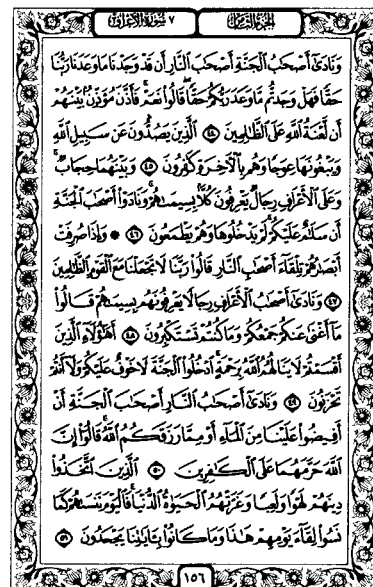 الجزء الثامن ٧ سورة الأعراف
وَنَادَىٰٓ أَصْحَٰبُ ٱلْجَنَّةِ أَصْحَٰبَ ٱلنَّارِ أَن قَدْ وَجَدْنَا مَا وَعَدَنَا رَبُّنَا
حَقًّا فَهَلْ وَجَدتُّم مَّا وَعَدَ رَبُّكُمْ حَقًّا ۖ قَالُوا۟ نَعَمْ ۚ فَأَذَّنَ مُؤَذِّنٌۢ بَيْنَهُمْ
أَن لَّعْنَةُ ٱللَّهِ عَلَى ٱلظَّٰلِمِينَ ٤٤ ٱلَّذِينَ يَصُدُّونَ عَن سَبِيلِ ٱللَّهِ
وَيَبْغُونَهَا عِوَجًا وَهُم بِٱلْءَاخِرَةِ كَٰفِرُونَ ٤٥ وَبَيْنَهُمَا حِجَابٌ ۚ
وَعَلَى ٱلْأَعْرَافِ رِجَالٌ يَعْرِفُونَ كُلًّۢا بِسِيمَىٰهُمْ ۚ وَنَادَوْا۟ أَصْحَٰبَ ٱلْجَنَّةِ
أَن سَلَٰمٌ عَلَيْكُمْ ۚ لَمْ يَدْخُلُوهَا وَهُمْ يَطْمَعُونَ ٤٦ ۞ وَإِذَا صُرِفَتْ
أَبْصَٰرُهُمْ تِلْقَآءَ أَصْحَٰبِ ٱلنَّارِ قَالُوا۟ رَبَّنَا لَا تَجْعَلْنَا مَعَ ٱلْقَوْمِ ٱلظَّٰلِمِينَ
٤٧ وَنَادَىٰٓ أَصْحَٰبُ ٱلْأَعْرَافِ رِجَالًا يَعْرِفُونَهُم بِسِيمَىٰهُمْ قَالُوا۟
مَآ أَغْنَىٰ عَنكُمْ جَمْعُكُمْ وَمَا كُنتُمْ تَسْتَكْبِرُونَ ٤٨ أَهَٰٓؤُلَآءِ ٱلَّذِينَ
أَقْسَمْتُمْ لَا يَنَالُهُمُ ٱللَّهُ بِرَحْمَةٍ ۚ ٱدْخُلُوا۟ ٱلْجَنَّةَ لَا خَوْفٌ عَلَيْكُمْ وَلَآ أَنتُمْ
تَحْزَنُونَ ٤٩ وَنَادَىٰٓ أَصْحَٰبُ ٱلنَّارِ أَصْحَٰبَ ٱلْجَنَّةِ أَنْ
أَفِيضُوا۟ عَلَيْنَا مِنَ ٱلْمَآءِ أَوْ مِمَّا رَزَقَكُمُ ٱللَّهُ ۚ قَالُوٓا۟ إِنَّ
ٱللَّهَ حَرَّمَهُمَا عَلَى ٱلْكَٰفِرِينَ ٥٠ ٱلَّذِينَ ٱتَّخَذُوا۟
دِينَهُمْ لَهْوًا وَلَعِبًا وَغَرَّتْهُمُ ٱلْحَيَوٰةُ ٱلدُّنْيَا ۚ فَٱلْيَوْمَ نَنسَىٰهُمْ كَمَا
نَسُوا۟ لِقَآءَ يَوْمِهِمْ هَٰذَا وَمَا كَانُوا۟ بِـَٔايَٰتِنَا يَجْحَدُونَ ٥١
١٥٦